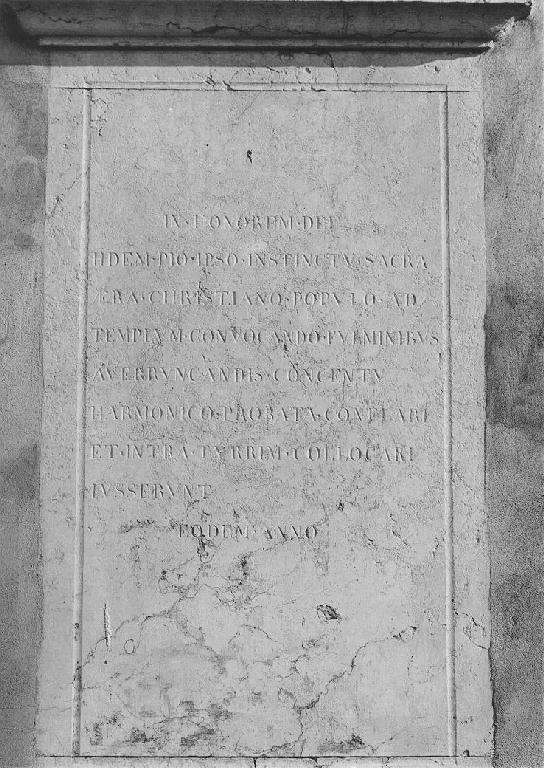 IN·HONOREM·DEI
IIDEM·PIO·IPSO·INSTINCTV·SACRA
ÆRA·CHRISTIANO·POPVLO·AD
TEMPLVM·CONVOCANDO·FVLMINIBVS
AVERRVNCANDIS·CONCENTV
HARMONICO·PROBATA·CONFLARI
ET·INTRA·TVRRIM·COLLOCARI
IVSSERVNT
EODEM·ANNO